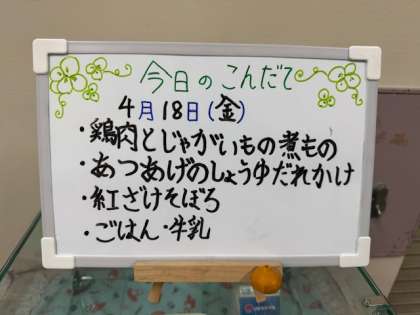 今日のこんだて
4月18日(金)
・鶏肉とじゃがいもの煮もの
・あつあげのしょうゆだれかけ
・紅ざけそぼろ
・ごはん・牛乳